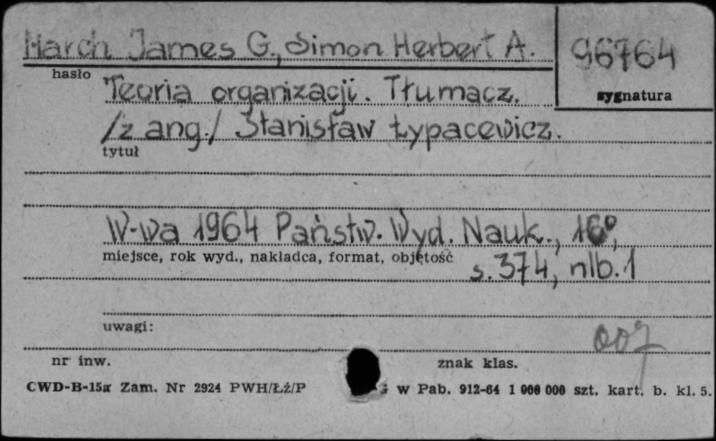 March James G., Simon Herbert A.
96764
hasło
sygnatura
Teoria organizacji. Tłumacz.
/z ang./ Stanisław Łypacewicz.
tytuł
W-wa 1964 Państw. Wyd. Nauk., 16°,
miejsce, rok wyd., nakładca, format, objętość
s. 374, nlb. 1
uwagi:
007
nr inw.
znak klas.
CWD-B-15a Zam. Nr 2924 PWH/Łź/P
w Pab. 912-64 1 000 000 szt. kart. b. kl. 5.